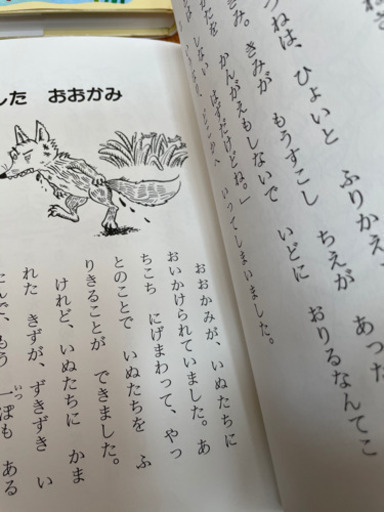 ねは、ひょいと ふりかえ
み。きみが もうすこし ちえが あった
かんがえもしないで いどに おりるなんてこ
しない はずだけどね。」
いってしまいました。
した おおかみ
おおかみが、いぬたちに
おいかけられていました。あ
ちこち にげまわって、やっ
とのことで いぬたちを ふ
りきることが できました。
けれど、いぬたちに かま
れた きずが、ずきずき い
もう 一ぽも ある
いっ